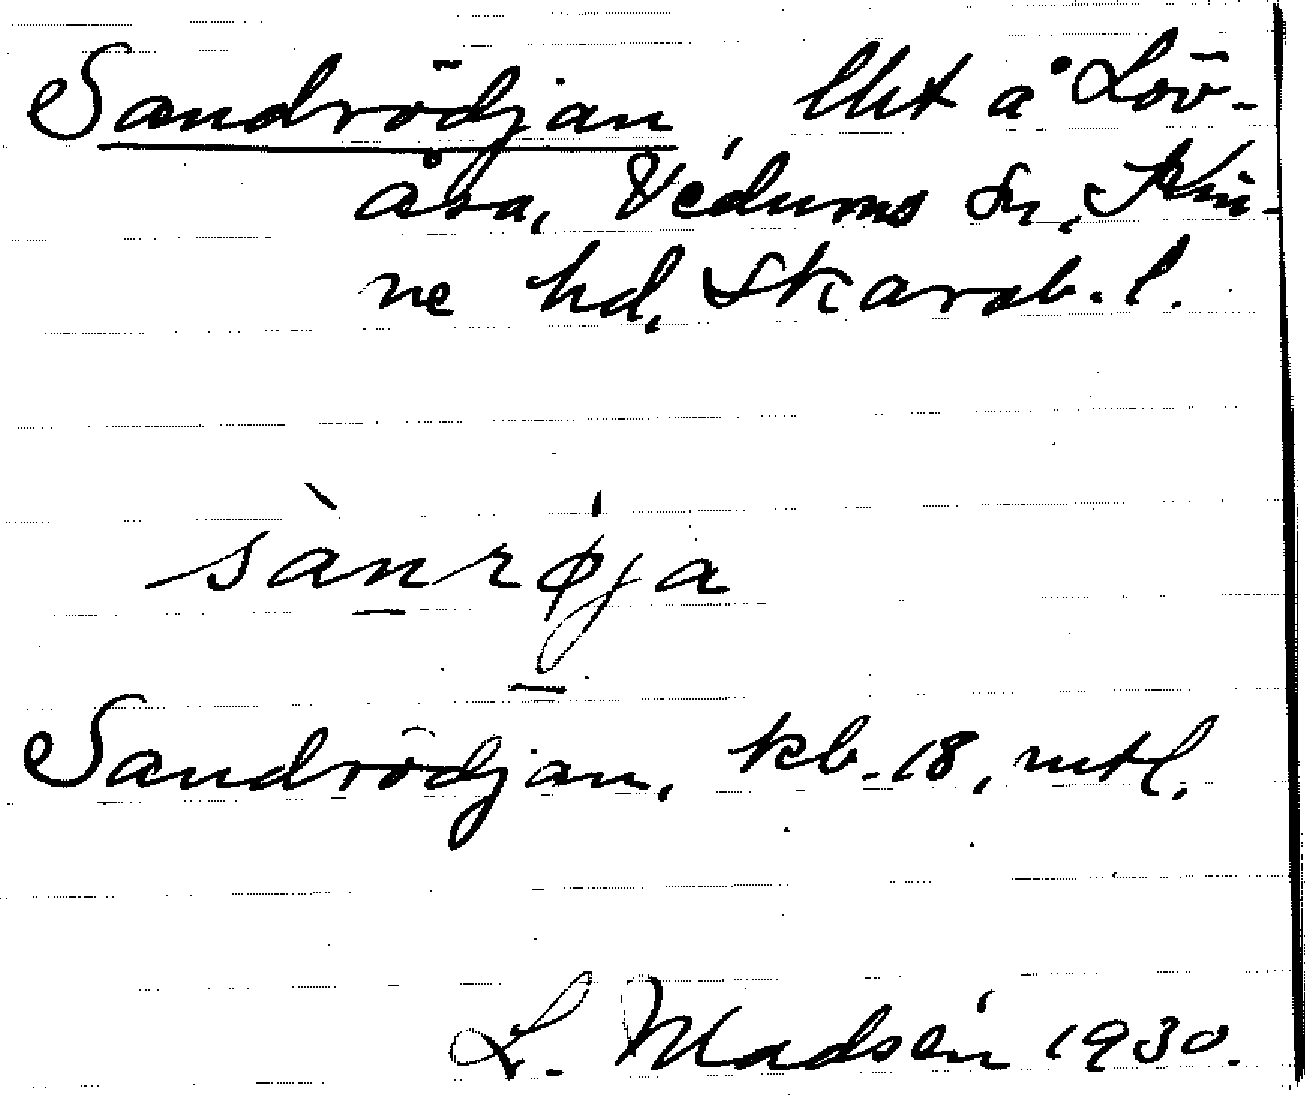 Sandrödjan, lht å Löv-
åsa, Vedums sn, Kin-
ne hd, Skarab. l.
sànrøja
Sandrödjan, kb. 18, mtl.
L. Madsén 1930.